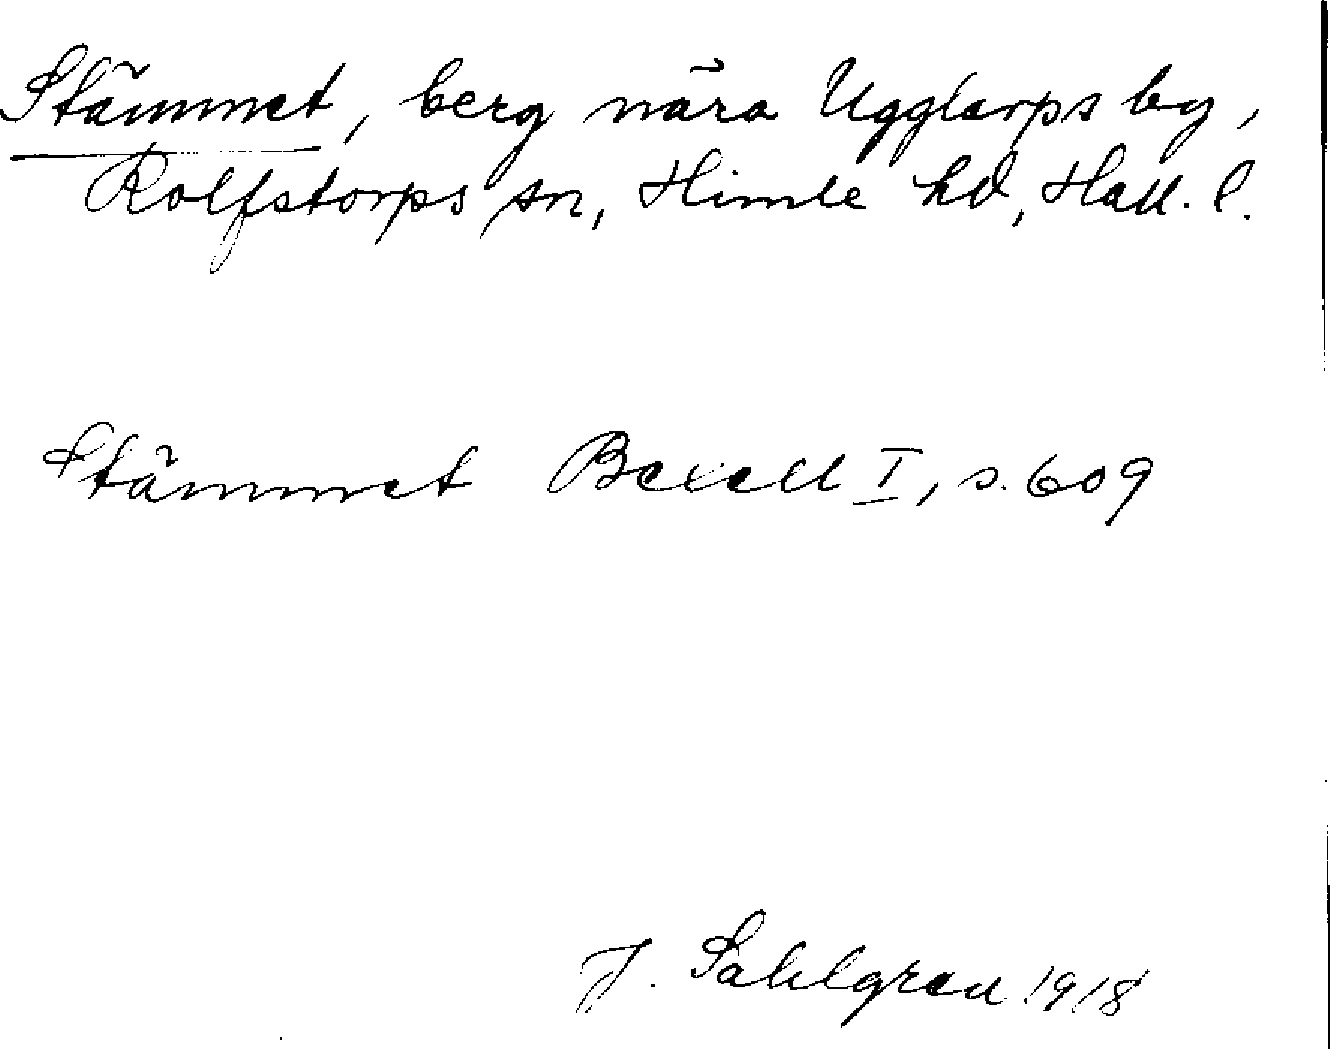 Stämmet, berg nära Ugglarps by,
Rolfstorps sn, Himle hd, Hall. l.
Stämmet Bexell I, s. 609
J. Sahlgren 1918